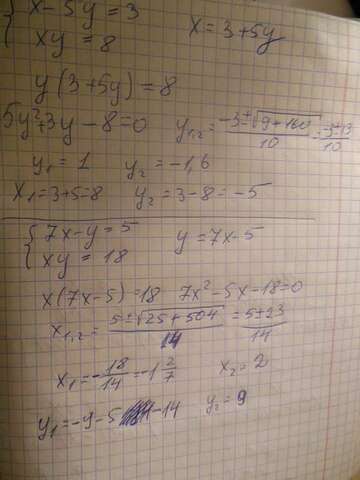 { x - 5y = 3
xy = 8 x = 3 + 5y
y(3 + 5y) = 8
5y² + 3y - 8 = 0 y₁,₂ = (-3 ± √(9 + 160))/10 = (-3 ± 13)/10
y₁ = 1 y₂ = -1,6
x₁ = 3 + 5 = 8 y₂ = 3 - 8 = -5
{ 7x - y = 5 y = 7x - 5
xy = 18
x(7x - 5) = 18 7x² - 5x - 18 = 0
x₁,₂ = (5 ± √(25 + 504))/14 = (5 ± 23)/14
x₁ = -18/14 = -1 2/7 x₂ = 2
y₁ = -9 - 5 - 14 y₂ = 9